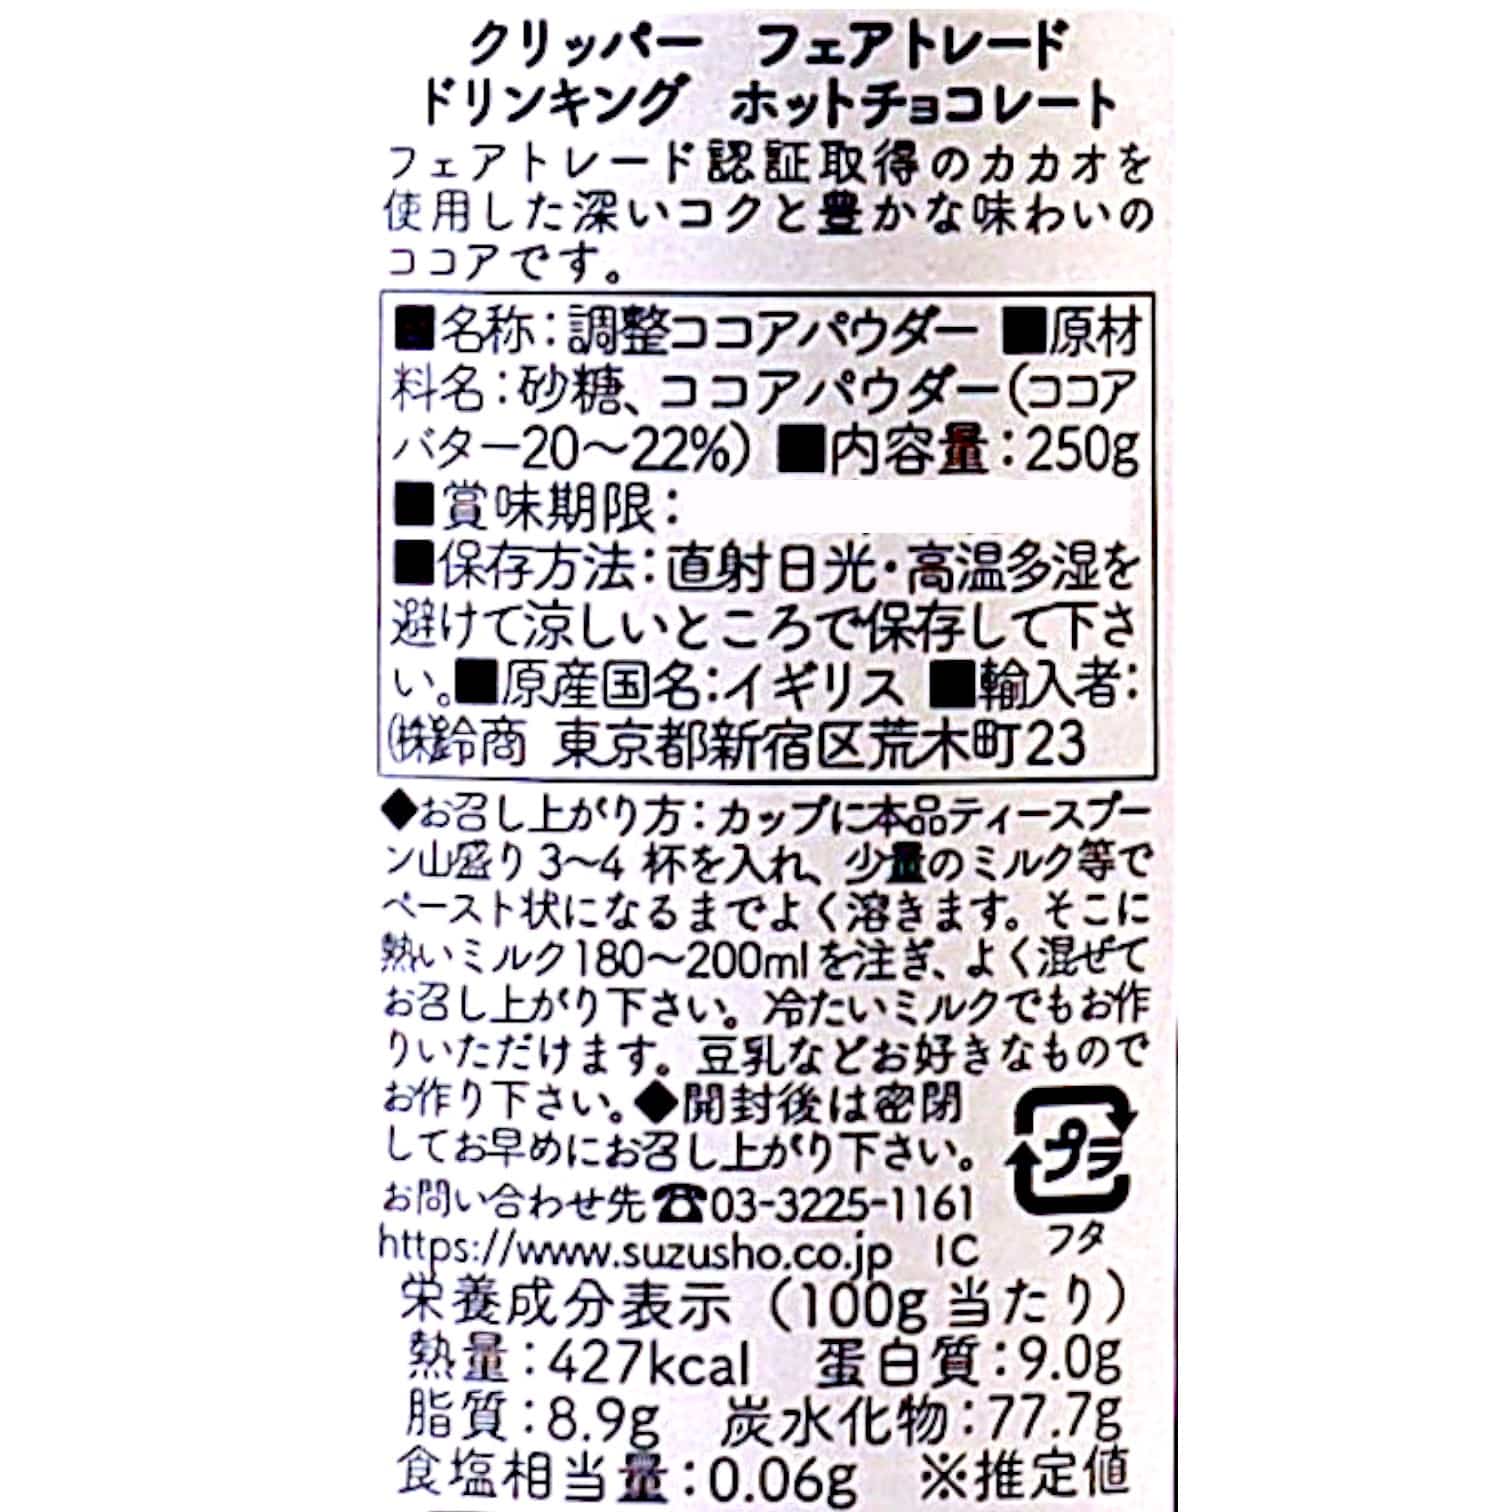 クリッパー　フェアトレード
ドリンキング　ホットチョコレート
フェアトレード認証取得のカカオを
使用した深いコクと豊かな味わいの
ココアです。
■名称：調整ココアパウダー ■原材
料名：砂糖、ココアパウダー（ココア
バター20〜22%）■内容量：250g
■賞味期限：
■保存方法：直射日光・高温多湿を
避けて涼しいところで保存して下さ
い。■原産国名：イギリス ■輸入者：
㈱鈴商 東京都新宿区荒木町23
◆お召し上がり方：カップに本品ティースプー
ン山盛り3〜4 杯を入れ、少量のミルク等で
ペースト状になるまでよく溶きます。そこに
熱いミルク180〜200mlを注ぎ、よく混ぜて
お召し上がり下さい。冷たいミルクでもお作
りいただけます。豆乳などお好きなもので
お作り下さい。◆開封後は密閉
してお早めにお召し上がり下さい。
お問い合わせ先☎03-3225-1161
https://www.suzusho.co.jp IC
プラ
フタ
栄養成分表示（100g当たり）
熱量：427kcal　蛋白質：9.0g
脂質：8.9g　炭水化物：77.7g
食塩相当量：0.06g　※推定値